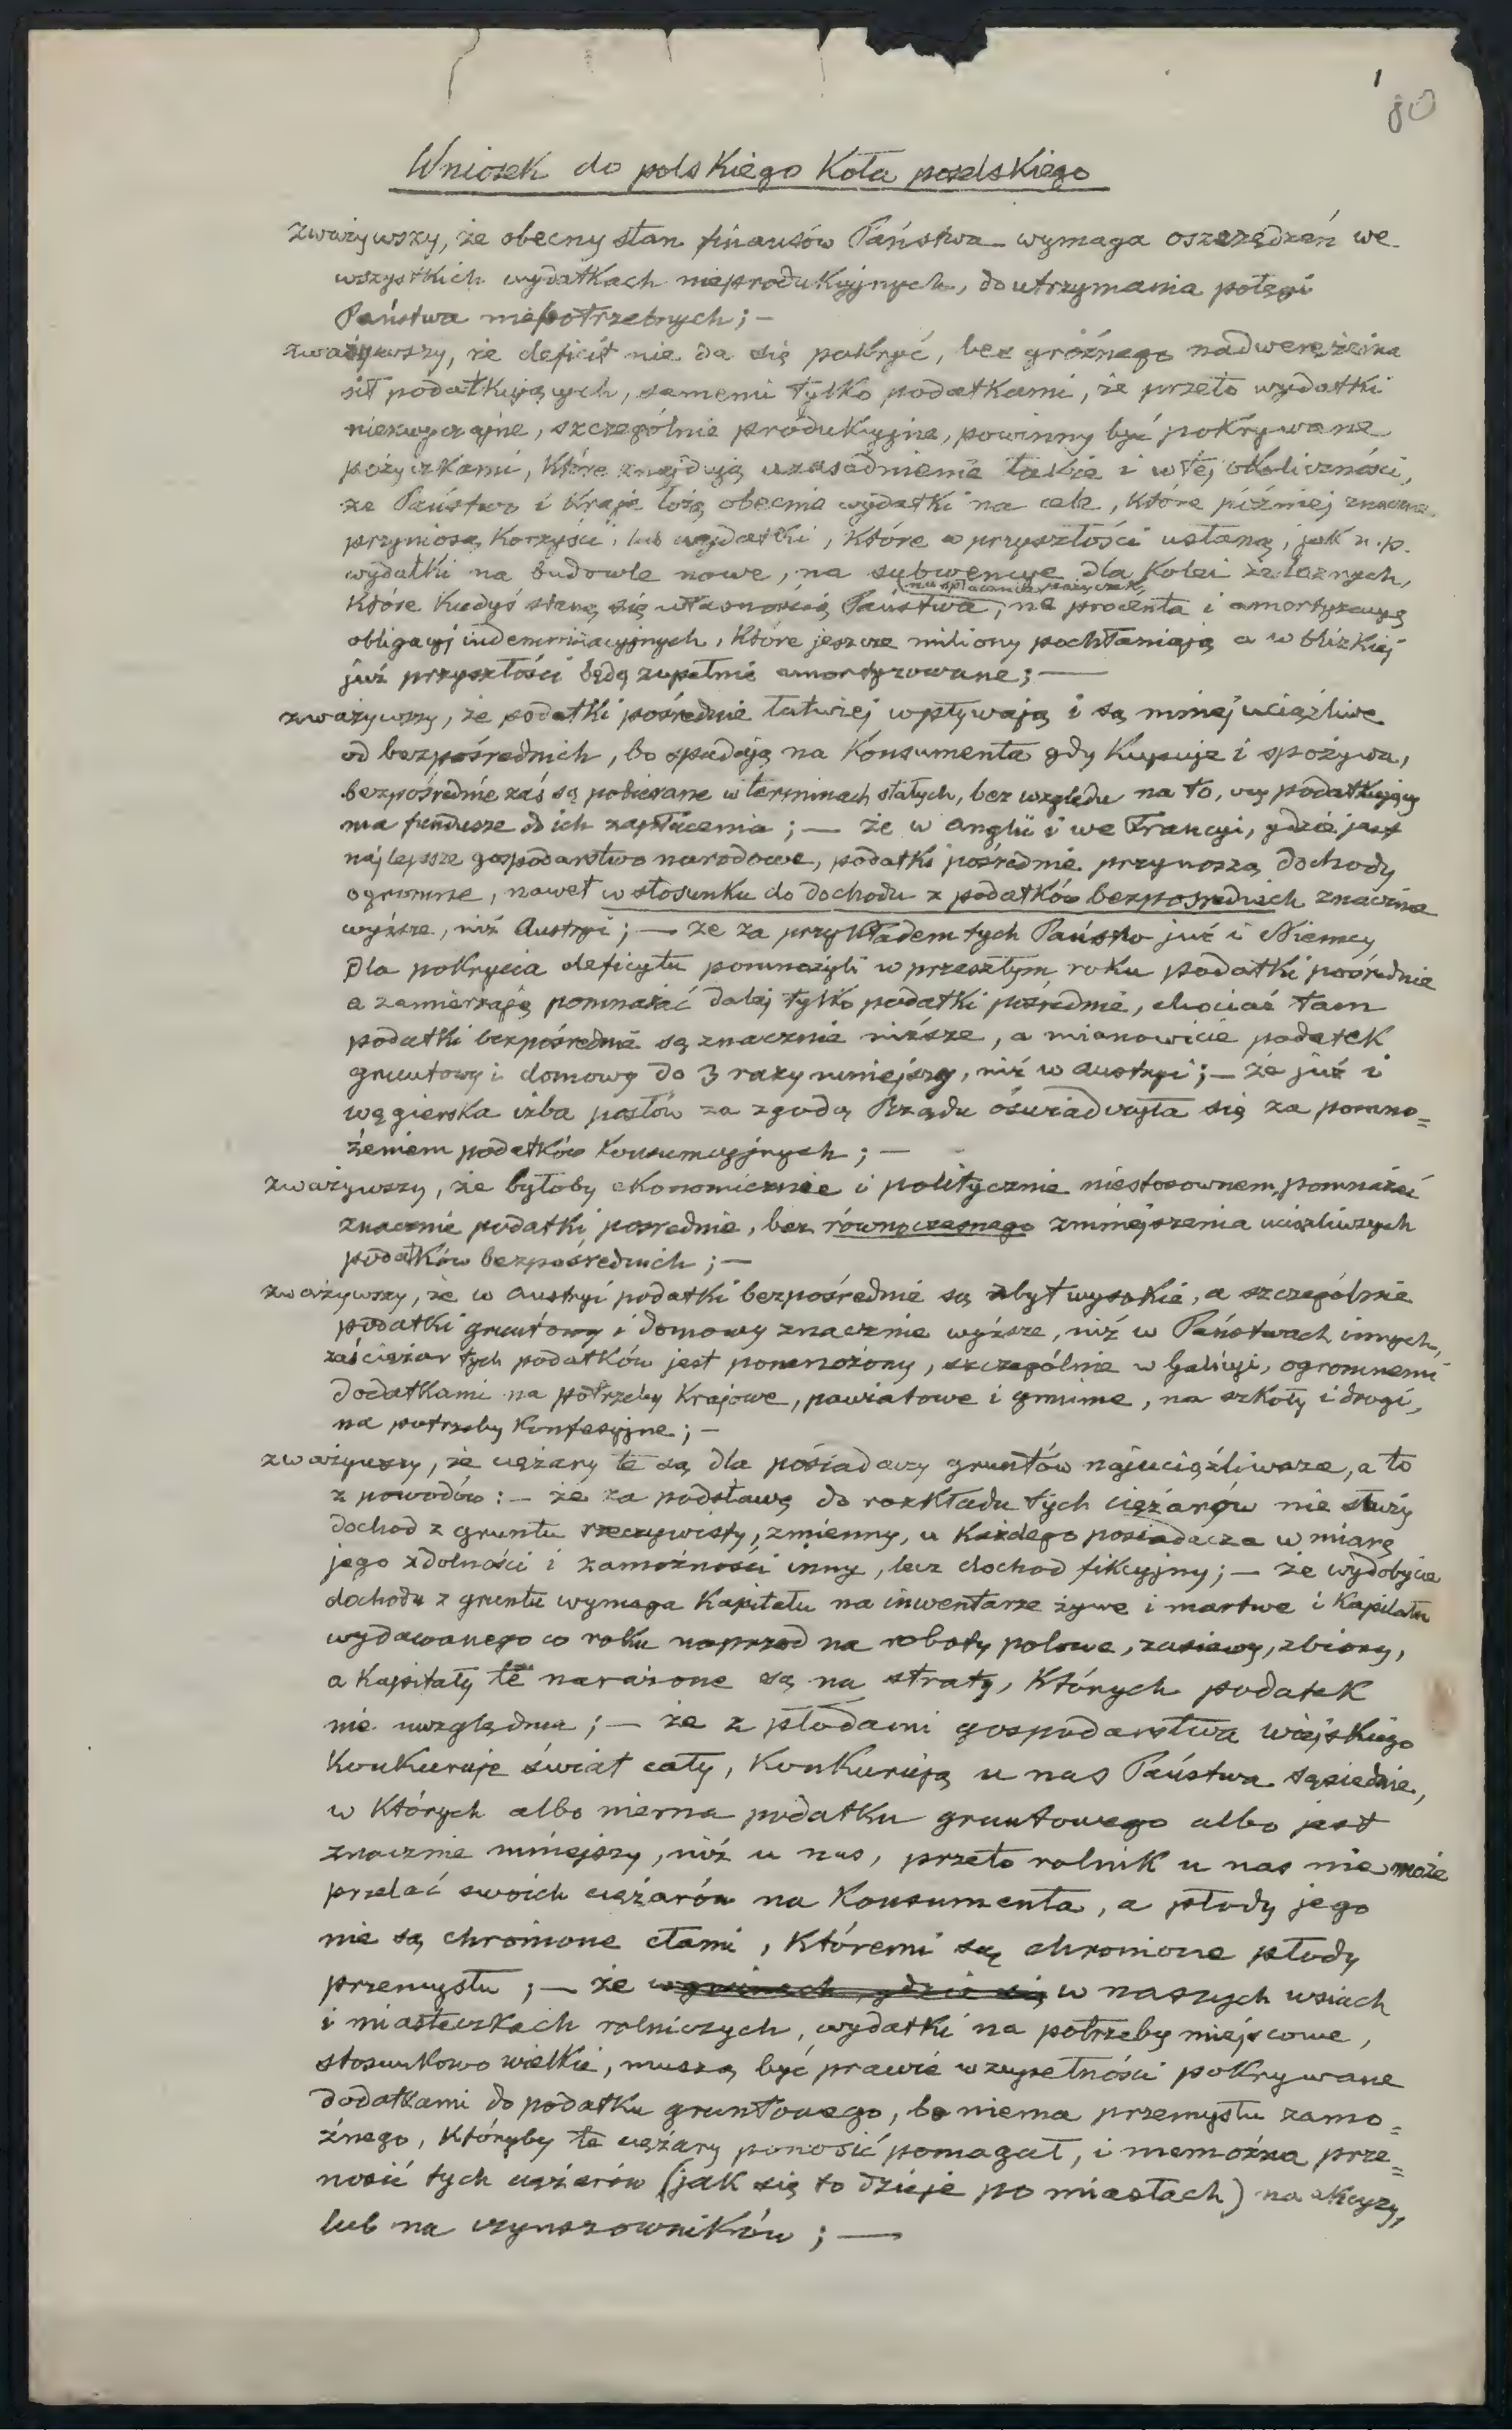 1
80
Wniosek do polskiego Koła poselskiego
zważywszy, że obecny stan finansów Państwa wymaga oszczędzań we
wszystkich wydatkach nieprodukcyjnych, do utrzymania potęgi
Państwa niepotrzebnych; —
zważywszy, że deficit nie da się pokryć, bez groźnego nadwerężenia
sił podatkujących, samemi tylko podatkami, że przeto wydatki
niezwyczajne, szczególnie produkcyjne, powinny być pokrywane
pożyczkami, które znajdują uzasadnienie także i w tej okoliczności,
że Państwo i Kraje łożą obecnie wydatki na cele, które później znaczne
przyniosą korzyści, lub wydatki, które w przyszłości ustaną, jak n.p.
wydatki na budowle nowe, na subwencye dla Kolei żelaznych,
na spłacanie pożyczek,
które kiedyś staną się własnością Państwa, na procenta i amortyzacyę
obligacyj indemnizacyjnych, które jeszcze miliony pochłaniają a w blizkiej
już przyszłości będą zupełnie amortyzowane; —
zważywszy, że podatki pośrednie łatwiej wpływają i są mniej uciążliwe
od bezpośrednich, bo spadają na Konsumenta gdy kupuje i spożywa,
bezpośrednie zaś są pobierane w terminach stałych, bez względu na to, czy podatkujący
ma fundusze do ich zapłacenia; — że w Anglii i we Francyi, gdzie jest
najlepsze gospodarstwo narodowe, podatki pośrednie przynoszą dochody
ogromne, nawet w stosunku do dochodu z podatków bezpośrednich znacznie
wyższe, niż Austryi; — że za przykładem tych Państw już i Niemcy
dla pokrycia deficytu pomnożyli w przeszłym roku podatki pośrednie
a zamierzają pomnażać dalej tylko podatki pośrednie, chociaż tam
podatki bezpośrednie są znacznie niższe, a mianowicie podatek
gruntowy i domowy do 3 razy mniejszy, niż w Austryi; — że już i
węgierska izba posłów za zgodą Rządu oświadczyła się za pomno=
żeniem podatków konsumcyjnych; —
zważywszy, że byłoby ekonomicznie i politycznie niestosownem, pomnażać
znacznie podatki pośrednie, bez równoczesnego zmniejszenia uciążliwszych
podatków bezpośrednich; —
zważywszy, że w Austryi podatki bezpośrednie są zbyt wysokie, a szczególnie
podatki gruntowy i domowy znacznie wyższe, niż w Państwach innych,
zaś ciężar tych podatków jest pomnożony, szczególnie w Galicyi, ogromnemi
dodatkami na potrzeby Krajowe, powiatowe i gminne, na szkoły i drogi,
na potrzeby Konfesyjne; —
zważywszy, że ciężary te są dla posiadaczy gruntów najuciążliwsze, a to
z powodów: — że za podstawę do rozkładu tych ciężarów nie służy
dochod z gruntu rzeczywisty, zmienny, u każdego posiadacza w miarę
jego zdolności i zamożności inny, lecz dochod fikcyjny; — że wydobycie
dochodu z gruntu wymaga Kapitału na inwentarze żywe i martwe i Kapitału
wydawanego co roku naprzod na roboty polowe, zasiewy, zbiory,
a Kapitały te narażone są na straty, których podatek
nie uwzględnia; — że z płodami gospodarstwa wiejskiego
Konkuruje świat cały, Konkurują u nas Państwa sąsiednie,
w których albo niema podatku gruntowego albo jest
znacznie mniejszy, niż u nas, przeto rolnik u nas nie może
przelać swoich ciężarów na Konsumenta, a płody jego
nie są chronione cłami, któremi są chronione płody
przemysłu; — że w gminach, gdzie się w naszych wsiach
i miasteczkach rolniczych, wydatki na potrzeby miejscowe,
stosunkowo wielkie, muszą być prawie w zupełności pokrywane
dodatkami do podatku gruntowego, bo niema przemysłu zamo=
żnego, któryby te ciężary ponosić pomagał, i niemożna prze=
nosić tych ciężarów (jak się to dzieje po miastach) na akcyzy,
lub na czynszowników; —